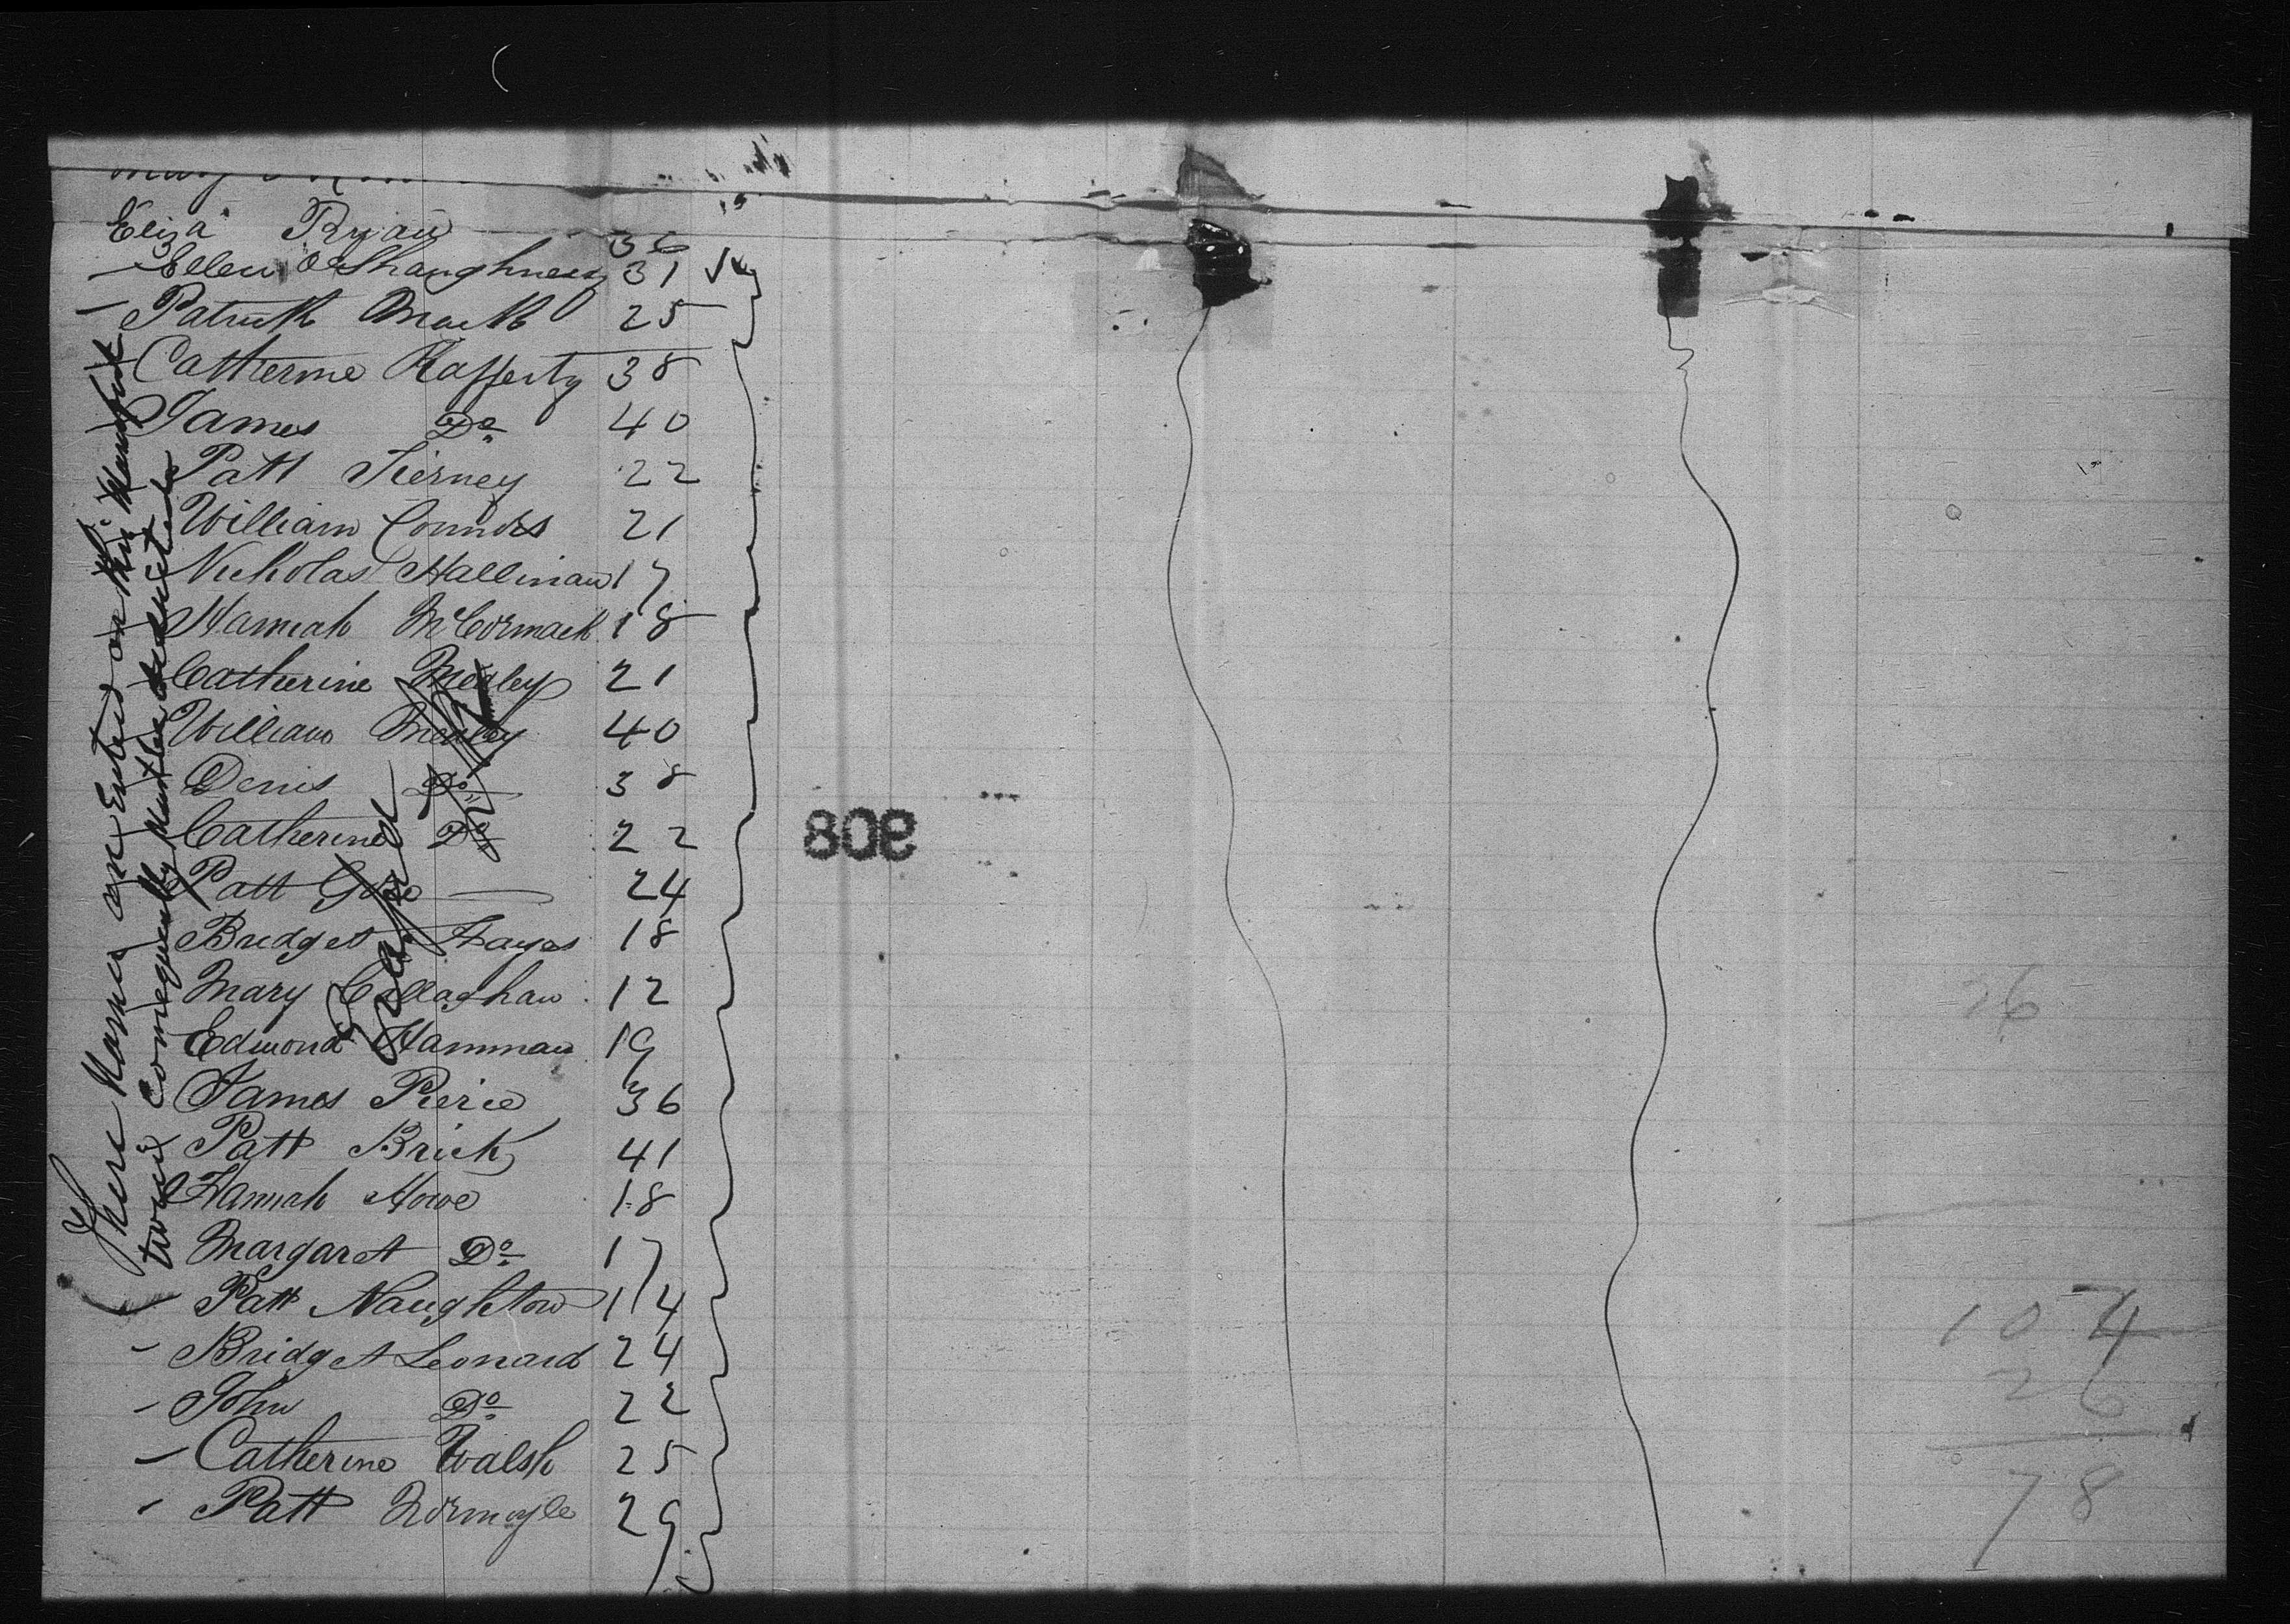 Eliza Ryan 36
Ellen O Shaughnessy 31
Patrick Mack 25
Catherine Rafferty 38
James Do 40
Patt Tierney 22
William Connors 21
Nicholas Hallinan 17
Hannah McCormack 18
Catherine Mealey 21
William Mealey 40
Denis Do 38
Catherine Do 22
Patt 24
Bridget Hayes 18
Mary Callaghan 12
Edmond Hannan 19
James Pierce 36
Patt Brick 41
Hannah Howe 18
Margaret Do 17
Patt Naughton 14
Bridget Leonard 24
John Do 22
Catherine Walsh 25
Patt Normoyle 29
These Names are Entered on this Manifest
twice Consequently Must be deducted
808
26
104
26
78